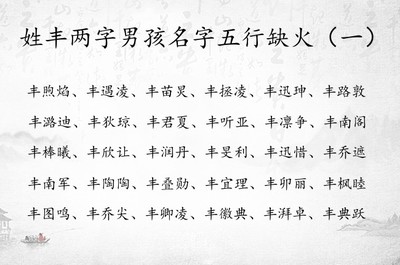 姓丰两字男孩名字五行缺火（一）
丰煦焰、丰遇凌、丰苗炅、丰拯凌、丰迅珅、丰路敦
丰潞迪、丰狄琼、丰君夏、丰听亚、丰凛争、丰南阁
丰棒曦、丰欣让、丰润丹、丰旻利、丰迅惜、丰乔遮
丰南军、丰陶陶、丰叠勋、丰宜理、丰卯丽、丰枫睦
丰图鸣、丰乔尖、丰卿凌、丰徽典、丰湃卓、丰典跃